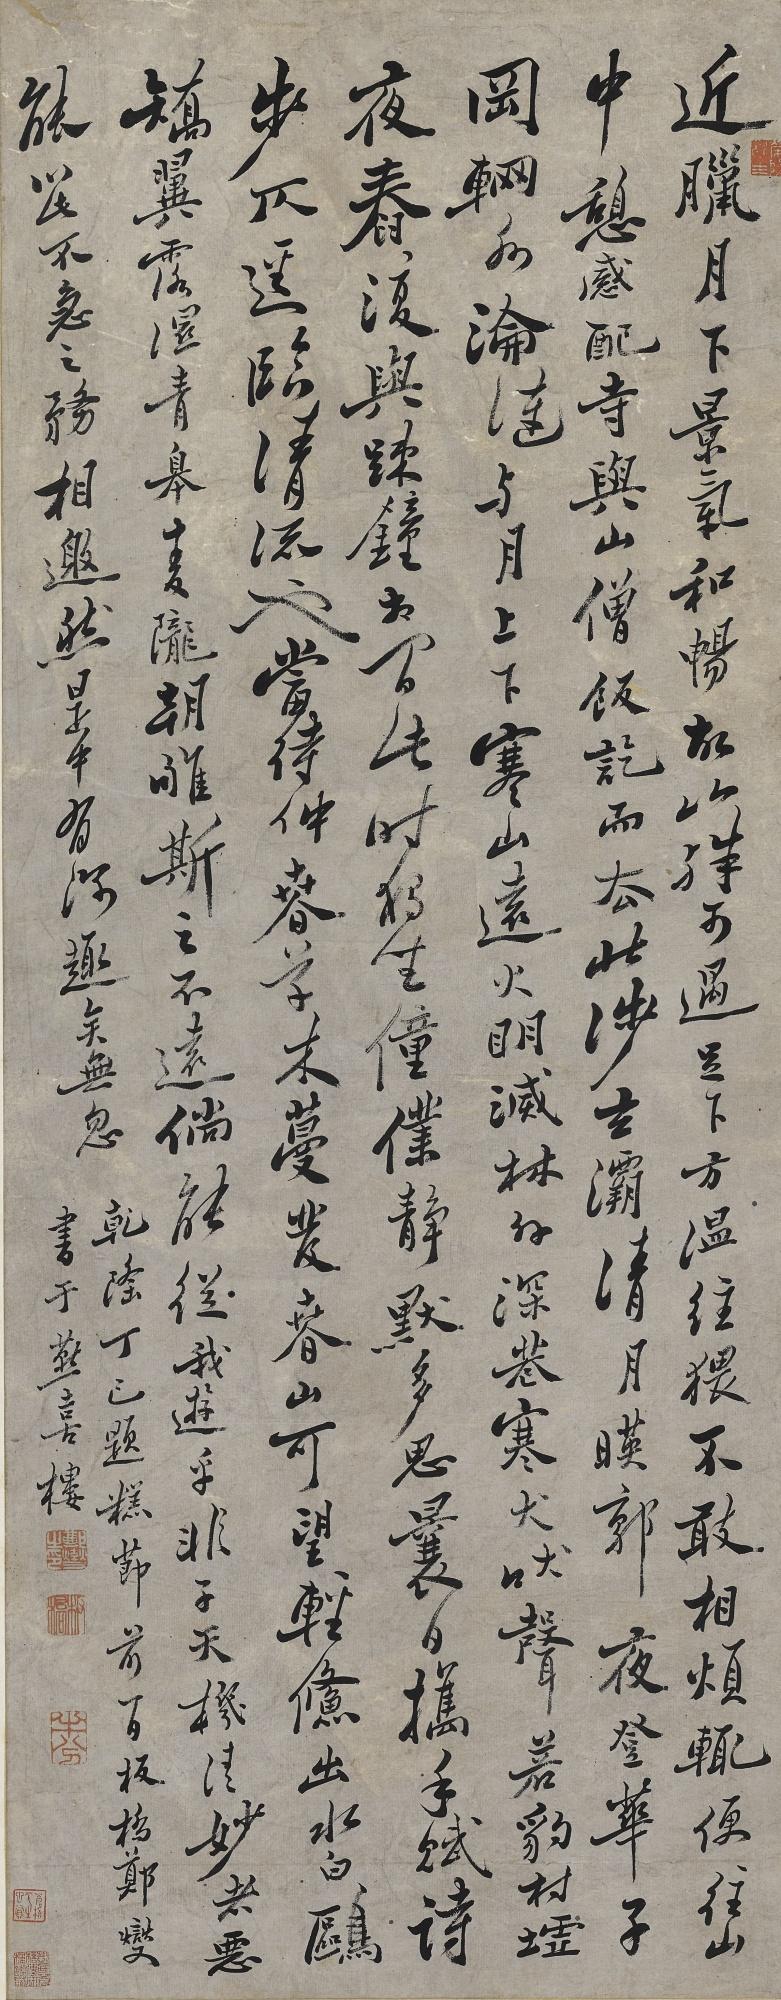 近臘月下景氣和暢故山殊可過足下方温经猥不敢相煩輒便往山
中憩感配寺與山僧飯訖而去北涉玄灞清月暎郭夜登華子
岡輞水淪漣与月上下寒山遠火明滅林外深巷寒犬吠聲若豹村墟
夜舂復與踈鐘相间此时獨坐僮僕静默多思曩日攜手賦詩
步仄逕臨清流也當待仲春草木蔓發春山可望輕鯈出水白鷗
矯翼露濕青皋麦隴朝雊斯之不遠倘能從我遊乎非子天機清妙者惡
能以此不急之務相邀然是中有深趣矣無忽
乾隆丁巳題糕節前一日板橋鄭燮
書于燕喜樓